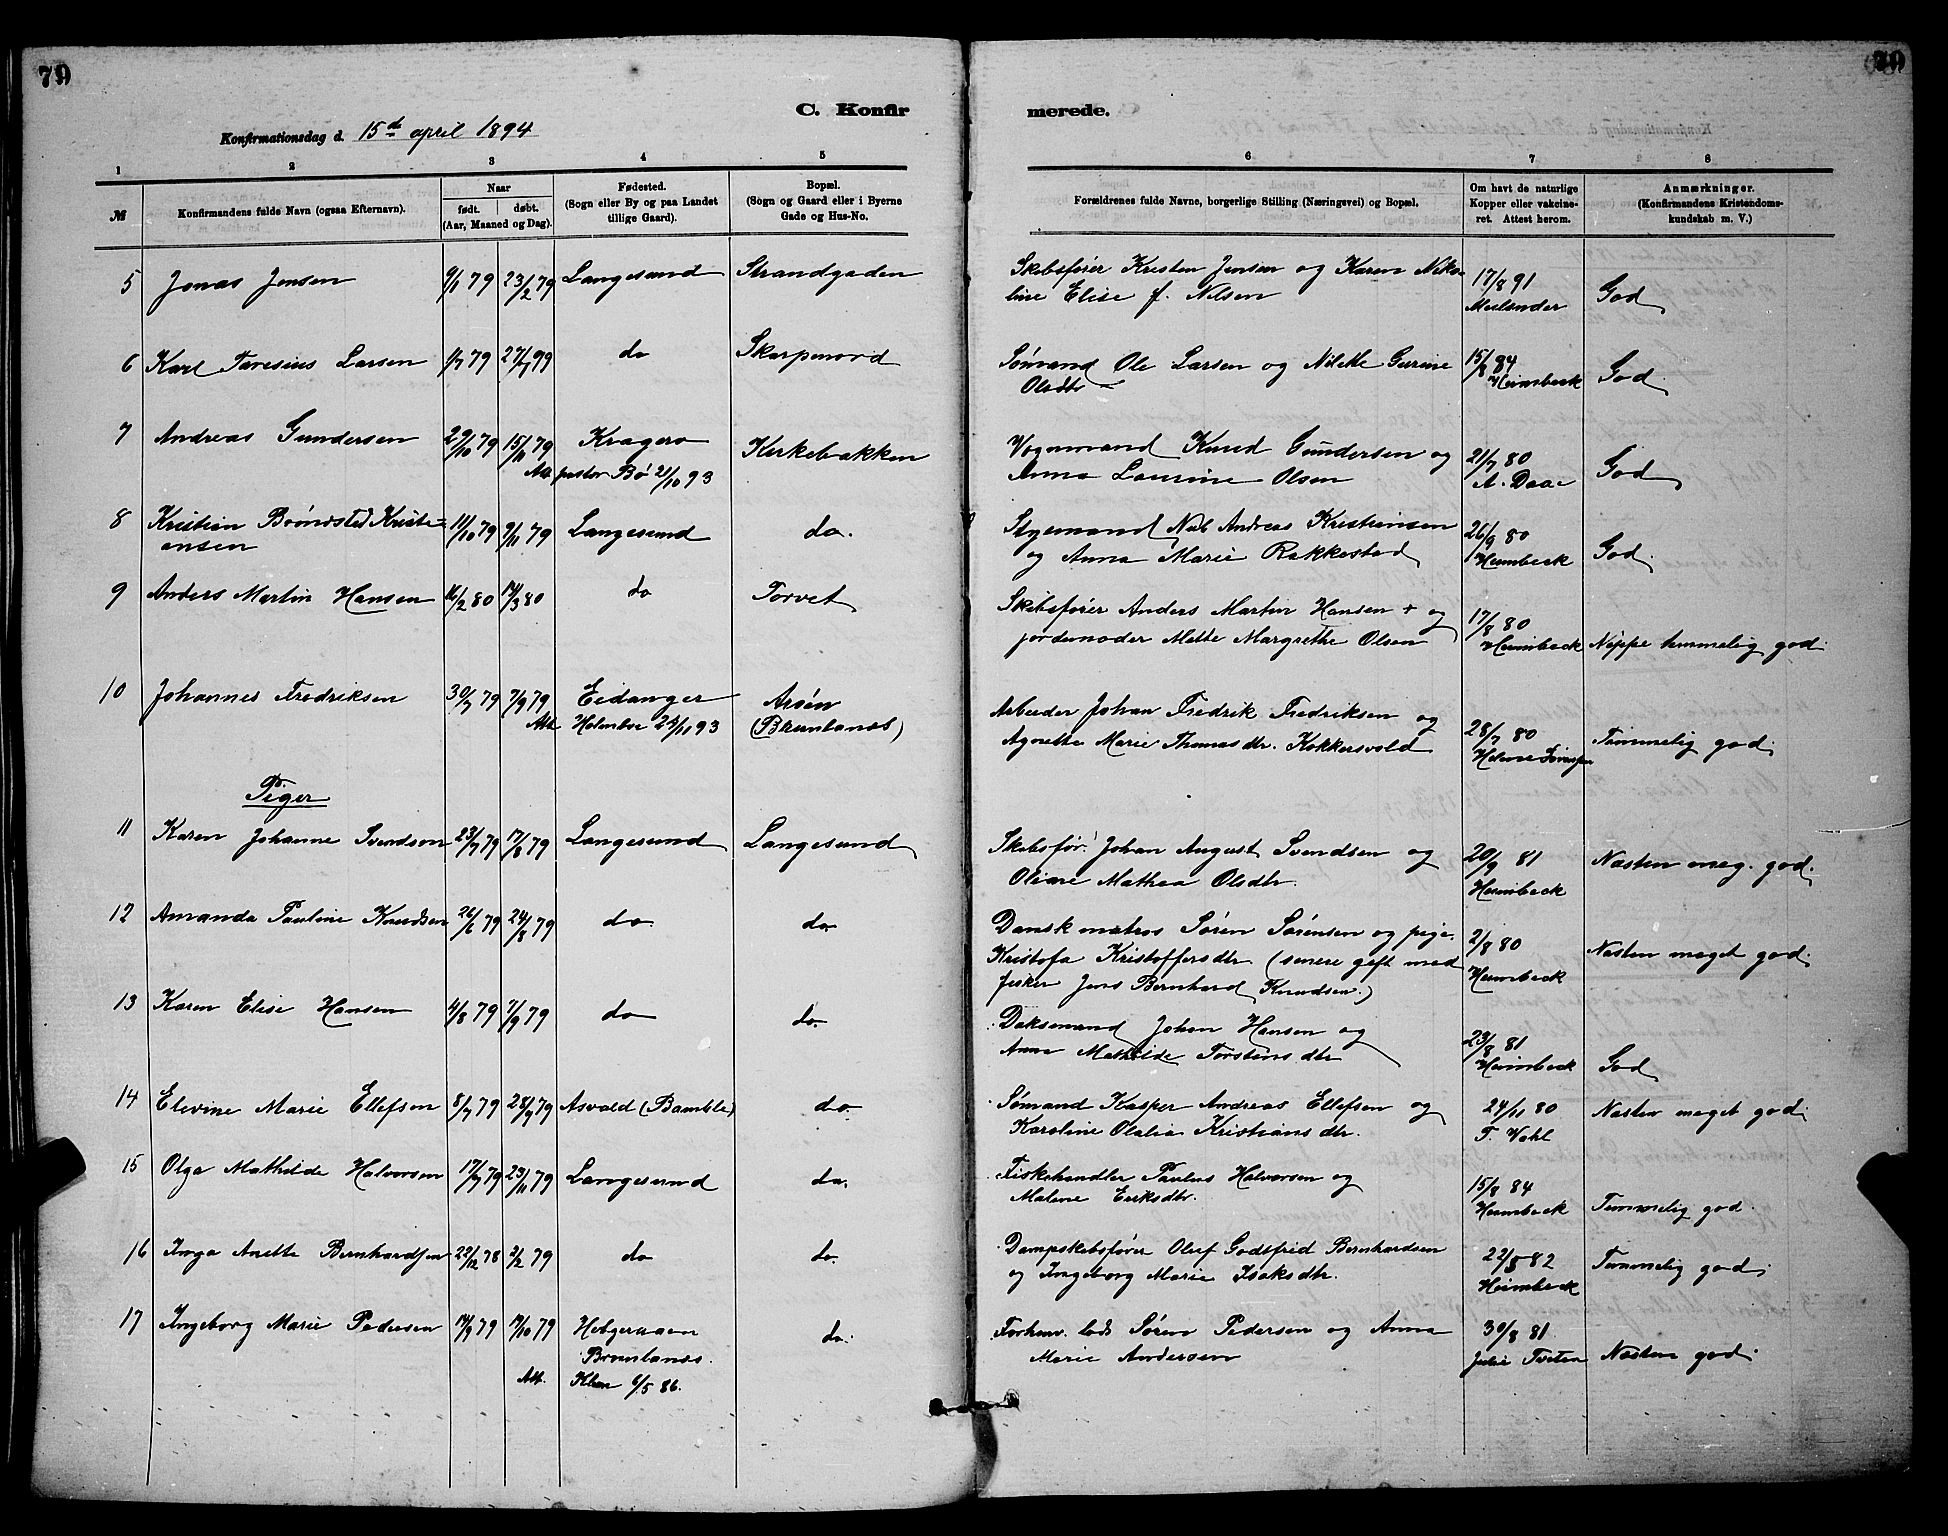 79
79
C. Konfir
merede.
Konfirmationsdag d. 15de april 1894
1 2 3 4 5 6 7 8
№
Konfirmandens fulde Navn (ogsaa Efternavn).
Naar
født. døbt.
(Aar, Maaned og Dag).
Fødested.
(Sogn eller By og paa Landet
tillige Gaard).
Bopæl.
(Sogn og Gaard eller i Byerne
Gade og Hus-No.
Forældrenes fulde Navne, borgerlige Stilling (Næringsvei) og Bopæl.
Om havt de naturlige
Kopper eller vakcine-
ret. Attest herom.
Anmærkninger.
(Konfirmandens Kristendoms-
kundskab m. V.)
5 Jonas Jensen 9/1 79 23/2 79 Langesund Strandgaden
Skibsfører Kristen Jensen og Karen Niko-
line Elise f. Nilsen 17/8 91 God
6 Karl Taresius Larsen 1/7 79 27/7 79 do
Sømand Ole Larsen og Nilekke Gurine
Olsdtr 15/8 84 Heimbeck God
7 Andreas Gundersen 29/10 79 15/11 79 Kragerø Kirkebakken
Att pastor Bø 21/10 93
Vognmand Knud Gundersen og
Anna Laurine Olsen 21/7 80 A. Daae God
8 Kristian Brønsted Kristi-
ansen 11/10 79 9/11 79 Langesund do.
Styrmand Nils Andreas Kristiansen
og Anna Marie Rakkestad 26/9 80 Heimbeck God.
9 Anders Martin Hansen 16/2 80 14/3 80 do Torvet
Skibsfører Anders Martin Hansen + og
jordemoder Mette Margrethe Olsen 17/8 80 Heimbeck Neppe temmelig god.
10 Johannes Fredriksen 30/7 79 7/9 79 Eidanger Arøen
Att Holmboe 24/11 93 (Brunlanes)
Arbeider Johan Fredrik Fredriksen og
Agnethe Marie Thomasdtr. Kokkersvold 28/7 80 Temmelig god.
Piger
11 Karen Johanne Svendsen 23/7 79 17/8 79 Langesund Langesund
Skibsfør. Johan August Svendsen og
Oliane Mathea Olsdtr. 20/9 81 Heimbeck Næsten meg. god.
12 Amanda Pauline Knudsen 26/6 79 24/8 79 do. do
Dansk matros Søren Sørensen og pige
Kristofa Kristoffersdtr (senere gift med
fisker Jens Bernhard Knudsen.) 2/8 80 Heimbeck Næsten meget god.
13 Karen Elise Hansen 4/8 79 7/9 79 do do.
Daksmand Johan Hansen og
Anna Mathilde Torstensdtr 23/8 81 Heimbeck God
14 Elevine Marie Ellefsen 8/7 79 28/9 79 Asvald (Bamble) do
Sømand Kasper Andreas Ellefsen og
Karoline Olalia Kristiansdtr. 24/11 80 T. Vahl Næsten meget god.
15 Olga Mathilde Halvorsen 17/7 79 23/11 79 Langesund do.
Fiskehandler Paulus Halvorsen og
Malene Eriksdtr. 15/8 84 Heimbeck Temmelig god.
16 Inga Anette Bernhardsen 22/12 78 2/2 79 do do.
Dampskibsfører Oluf Godtfred Bernhardsen
og Ingeborg Marie Isaksdtr. 22/5 82 Heimbeck Temmelig god.
17 Ingeborg Marie Pedersen 14/9 79 19/10 79 Helgeroaen do.
Brunlanes.
Att. 6/5 86.
Forhenv. lods Søren Pedersen og Anna
Marie Andersen 30/8 81 Næsten god.